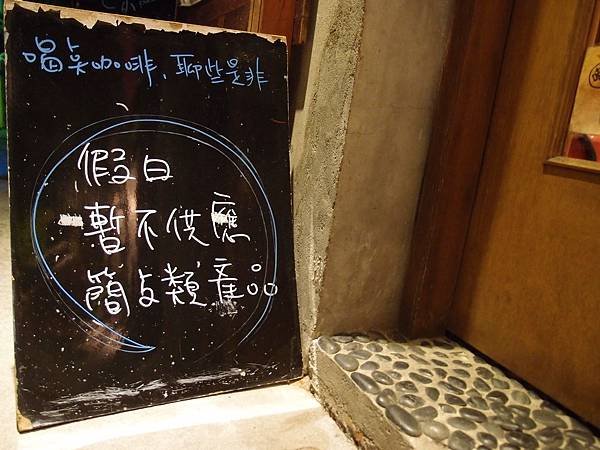 喝点咖啡、聊些是非
假日
暫不供應
簡点類產品